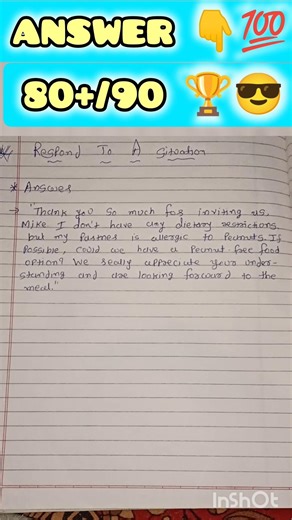 ANSWER 👇💯
80+/90 🏆😎
Respond To A Situation
* Answer
→ "Thank you so much for inviting us,
Mike I don't have any dietary restrictions
but my Partner is allergic to Peanuts. If
Possible, could we have a Peanut free food
option? We really appreciate your under-
standing and are looking forward to the
meal."
InShOt